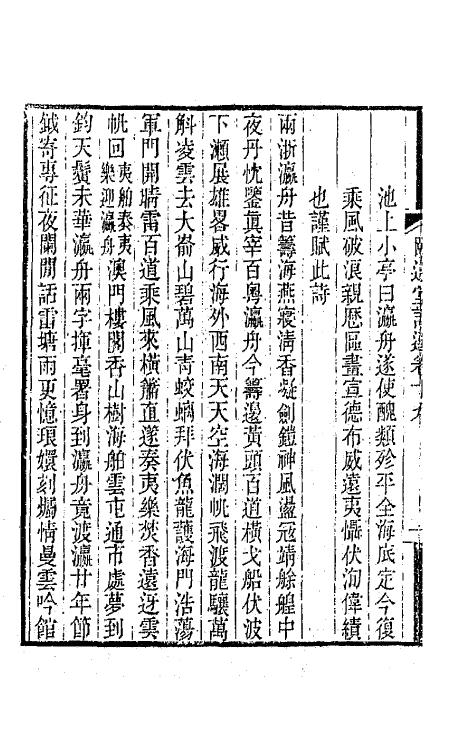 池上小亭曰瀛舟遂使醜類殄平全海底定今復
乘風破浪親歷區畫宣德布威遠夷懾伏洵偉績
也謹賦此詩
兩浙瀛舟昔籌海燕寢清香凝劍鎧神風盪寇靖餘艎中
夜丹忱鑒眞宰百粤瀛舟今籌邊黃頭百道橫戈船伏波
下瀨展雄畧威行海外西南天天空海濶帆飛渡龍驤萬
斛凌雲去大嵛山碧萬山青蛟螭拜伏魚龍護海門浩蕩
軍門開晴雷百道乘風來橫簫直遂奏夷樂焚香遠迓雲
帆回夷舶奏夷樂迎瀛舟澳門樓閣香山樹海舶雲屯通市處夢到
鈞天鬢未華瀛舟兩字揮毫署身到瀛舟竟渡瀛廿年節
鉞寄專征夜闌閒話雷塘雨更憶琅嬛刻燭情曼雲吟館